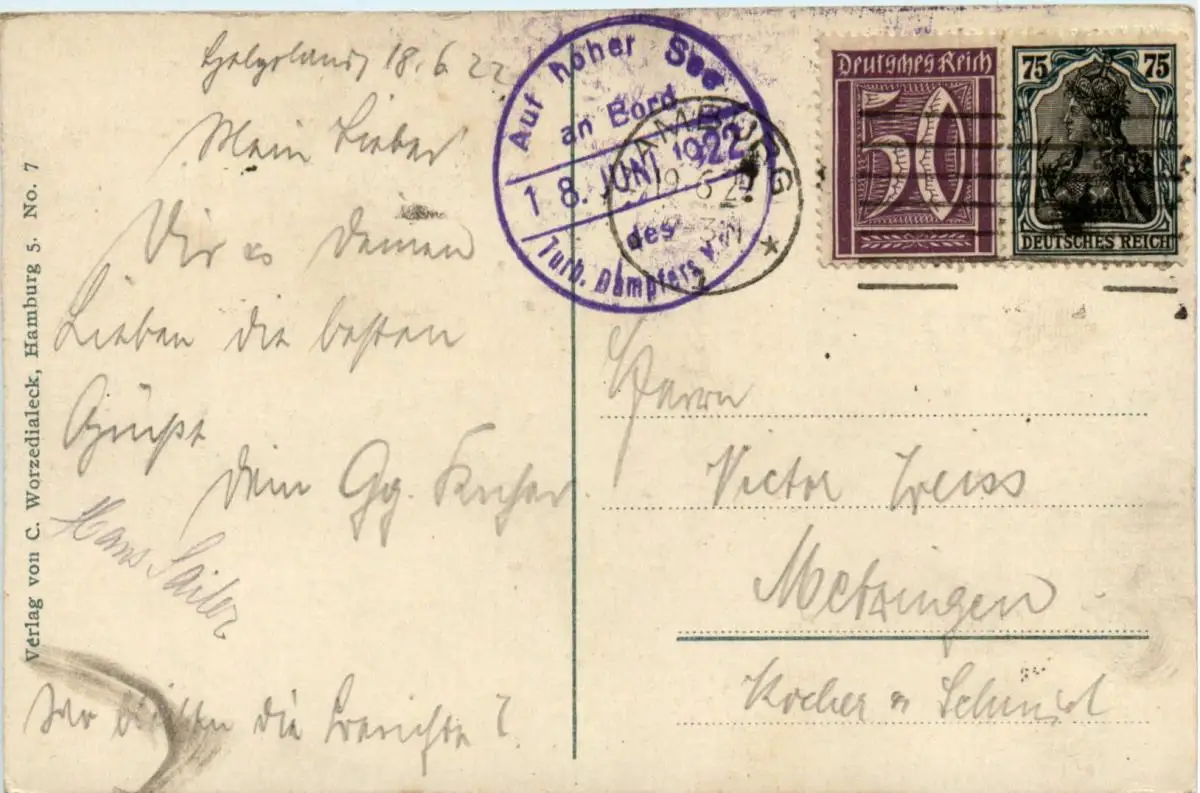 Helgoland 18.6.22
Mein Lieber
Dir & Deinen
Lieben die besten
Grüße
Dein Gg. Kocher
Hans Sailer
die Berichte?
Verlag von C. Worzedialeck, Hamburg 5. No. 7
Auf hoher See
an Bord
18. JUNI 1922
des
Turb. Dampfers
HAMBURG
19.6.22
Deutsches Reich
50
75 75
DEUTSCHES REICH
Herrn
Victor Weiss
Metzingen
Kocher & Schmid